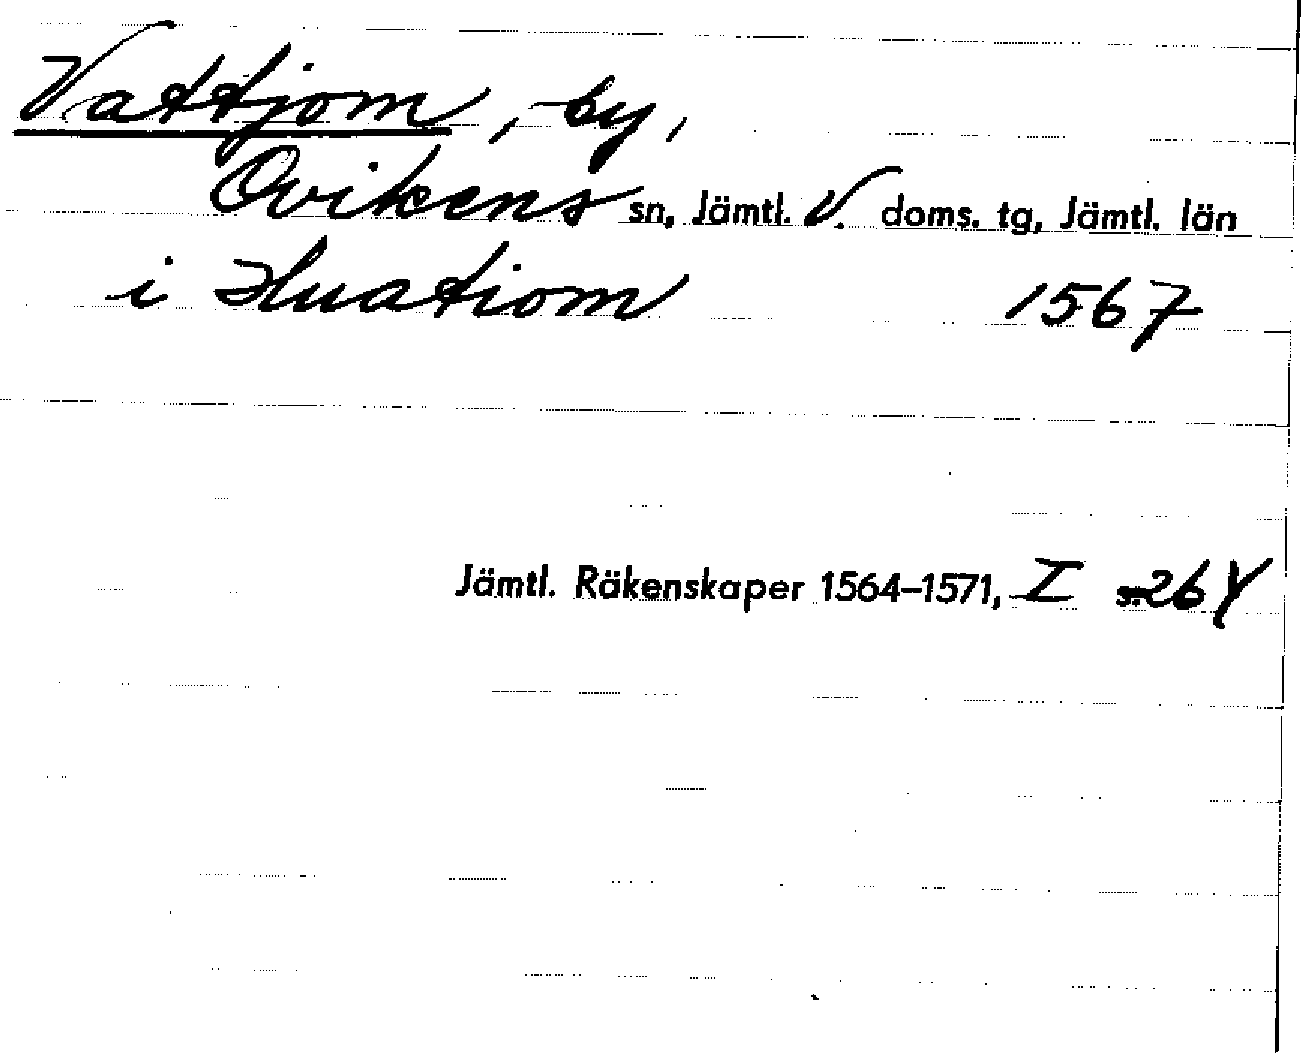 Vattjom, by,
Ovikens sn, Jämtl. V. doms. tg, Jämtl. län
i Huatiom 1567
Jämtl. Räkenskaper 1564–1571, I s. 26